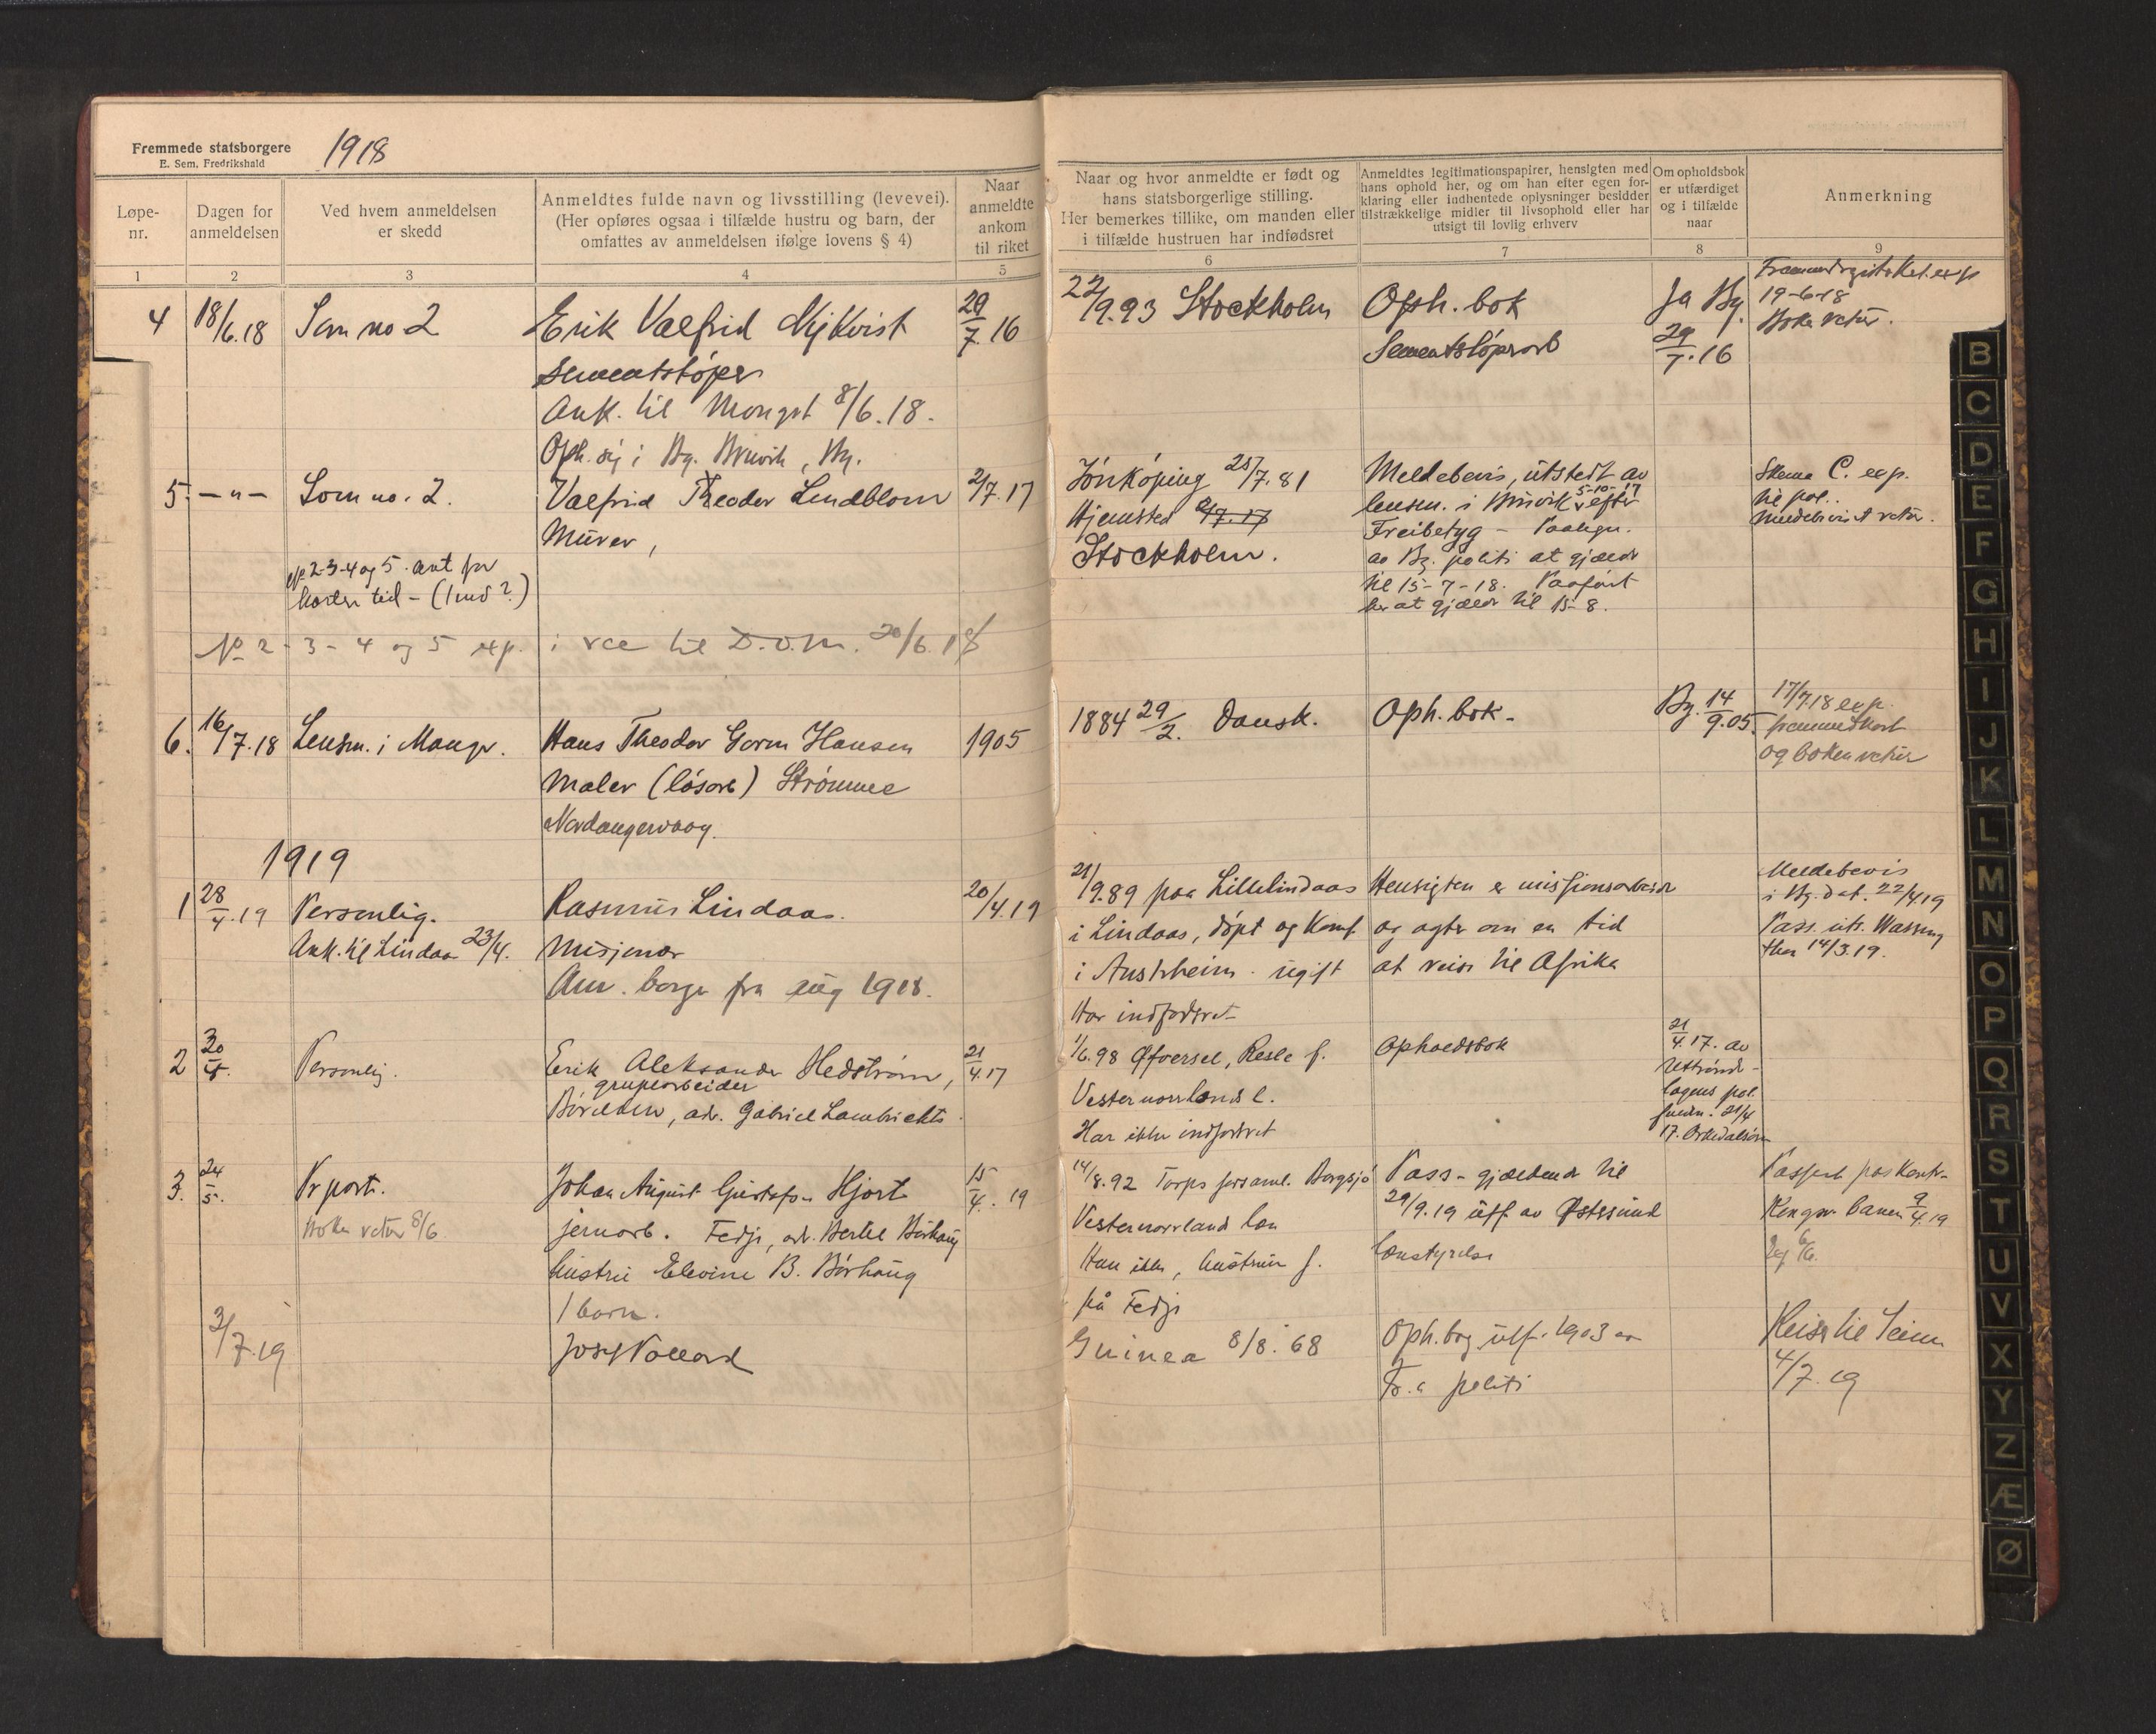 Fremmede statsborgere
E. Sem, Fredrikshald
1918
Løpe-
nr.
Dagen for
anmeldelsen
Ved hvem anmeldelsen
er skedd
Anmeldtes fulde navn og livsstilling (levevei).
(Her opføres ogsaa i tilfælde hustru og barn, der
omfattes av anmeldelsen ifølge lovens § 4)
Naar
anmeldte
ankom
til riket
Naar og hvor anmeldte er født og
hans statsborgerlige stilling.
Her bemerkes tillike, om manden eller
i tilfælde hustruen har indfødsret
Anmeldtes legitimationspapirer, hensigten med
hans ophold her, og om han efter egen for-
klaring eller indhentede oplysninger besidder
tilstrækkelige midler til livsophold eller har
utsigt til lovlig erhverv
Om opholdsbok
er utfærdiget
og i tilfælde
naar
Anmerkning
1 2 3 4 5 6 7 8 9
4 18/6.18 Som no 2
Erik Valfrid Nykvist
sementstøper
Ank. til Monget 8/6.18.
Oph. sig i Bg.
29/7.16
22/9.93 Stockholm
Oph. bok
Sementstøperarb
Ja Bg.
29/7.16
19-6-18
Boka retur.
5. — " — Som no. 2.
Valfrid Theodor Lindblom
Murer,
2/7.17
Jönköping 25/7.81
Hjemsted 2/7.17
Stockholm.
Meldebevis, utstedt av
lensm. i Bruvik 5-10-17 efter
Freibetyg – Paategn.
av Bg. politi at gjælde
til 15-7-18. Paaført
her at gjælde til 15-8.
Skema C. exp.
til pol..
Meldebeviset retur.
No 2-3-4 og 5. ant for
kortere tid – (1 md ?)
No 2 - 3 - 4 og 5 exp. i til D.O.M. 20/6.18
6. 16/7.18 Lensm. i Manger.
Hans Theodor Gorm Hansen
Maler (løsarb) Strømme
Nordangervaag.
1905
1884 29/2. Dansk.
Oph. bok.
Bg. 14/9.05.
17/7.18 exp.
fremmedkort
og boken retur
1919
1 28/4.19 Personlig.
Ank. til Lindaas 23/4.
Rasmus Lindaas.
Misjonær
Am. borger fra aug 1918.
20/4.19
21/9.89 paa Lillelindaas
i Lindaas, døpt og konf.
i Austrheim. ugift
Har indfødsret
Hensigten er missionsarbeide
og agter om en tid
at reise til Afrika
Meldebevis
i Bg. dat. 22/4 19
Pass. uts. Washing
ton 14/3.19.
2 Personlig.
Erik Aleksander Hedström,
grubearbeider
adr. Gabriel Lambrichts
21/4.17
1/6.98
Vesternorrlands l.
Har ikke indfødsret
Opholdsbok
21/4.17. av
Uttrønde-
lagens pol.
21/4
17. Orkedalsøren
3. 24/5. Pr post.
Boka retur 8/6.
Johan August Gustafson Hjort
jernarb. Fedje, adr. Bertel Børhaug
hustru Elevine B. Børhaug
1 barn.
15/4. 19
14/8.92 Torps forsaml. Borgsjö
Vesternorrland len
Han ikke, hustruen f.
på Fedje
Pass – gjældende til
29/9.19 utf. av Østersund
lenstyrelse
Passert pas kontr.
Kongsv. banen 9/4.19
3/7.19
Josef Pollard
Guinea 8/8.68
Oph. bog utf. 1903 av
politi
Reiser til Seim
4/7.19
B
C
D
E
F
G
H
I
J
K
L
M
N
O
P
Q
R
S
T
U
V
X
Y
Z
Æ
Ø